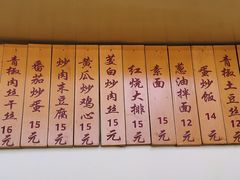 青椒肉丝干丝
16元
番茄炒蛋
15元
炒肉末豆腐
15元
黄瓜炒鸡心
15元
茭白炒肉丝
15元
红烧大排
15元
素面
15元
葱油拌面
12元
蛋炒饭
14元
青椒土豆丝
12元